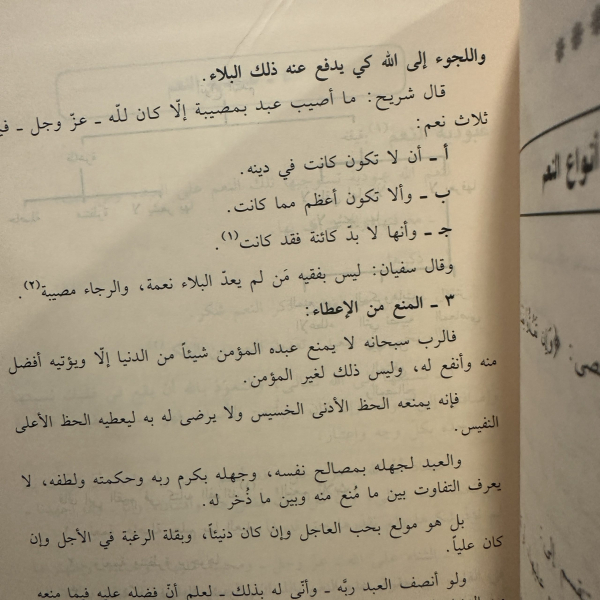 واللجوء إلى الله كي يدفع عنه ذلك البلاء.
قال شريح: ما أصيب عبد بمصيبة إلّا كان للّه ـ عزّ وجل ـ
ثلاث نعم:
أ ـ أن لا تكون كانت في دينه.
ب ـ وألا تكون أعظم مما كانت.
جـ ـ وأنها لا بدّ كائنة فقد كانت(١).
وقال سفيان: ليس بفقيه مَن لم يعدّ البلاء نعمة، والرجاء مصيبة(٢).
٣ ـ المنع من الإعطاء:
فالرب سبحانه لا يمنع عبده المؤمن شيئاً من الدنيا إلّا ويؤتيه أفضل
منه وأنفع له، وليس ذلك لغير المؤمن.
فإنه يمنعه الحظ الأدنى الخسيس ولا يرضى له به ليعطيه الحظ الأعلى
النفيس.
والعبد لجهله بمصالح نفسه، وجهله بكرم ربه وحكمته ولطفه، لا
يعرف التفاوت بين ما مُنع منه وبين ما ذُخر له.
بل هو مولع بحب العاجل وإن كان دنيئاً، وبقلة الرغبة في الآجل وإن
كان علياً.
ولو أنصف العبد ربَّه ـ وأنّى له بذلك ـ لعلم أنّ فضله عليه فيما منعه
أنواع النعم